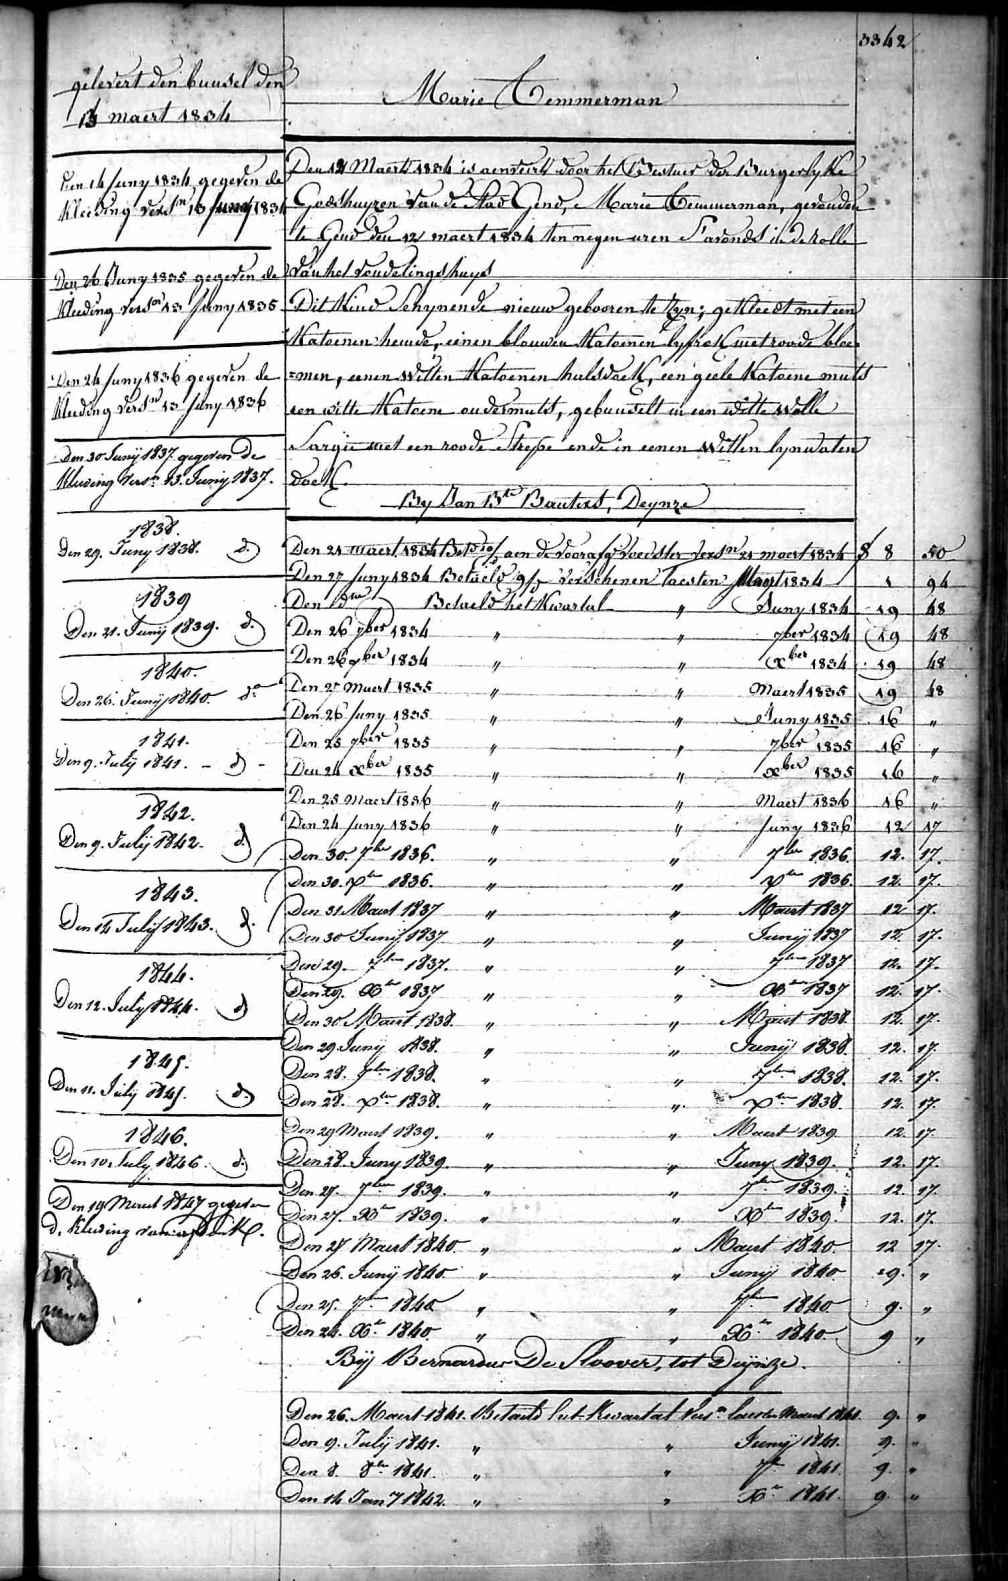 3342
gelevert den buusel den
13 maert 1834
Den 14 Juny 1834 gegeven de
Kleeding versn 13 Juny 1834
Den 26 Juny 1835 gegeven de
Kleeding versn 13 Juny 1835
Den 24 Juny 1836 gegeven de
kleeding versn 13 Juny 1836
Den 30 Junij 1837 gegeven de
Kleeding versn 13 Junij 1837.
1838.
Den 29. Juny 1838. d.
1839
Den 21. Junij 1839. d.
1840.
Den 26. Junij 1840. do
1841.
Den 9. Julij 1841. - d -
1842.
Den 9. Julij 1842. d.
1843.
Den 14 Julij 1843. d.
1844.
Den 12. July 1844. d
1845.
Den 11. Julij 1845. d.
1846.
Den 10. July 1846. d.
Den 19 Maert 1847 gegeven
d. Kleeding van
Marie Temmerman
Den 14 Maert 1834 is aenveirt door het Bestuer der Burgerlyke
Godshuyzen van de Stad Gend, Marie Temmerman, gevonden
te Gend den 12 maert 1834 ten negen uren S'avonds in de rolle
van het vondelingshuys
Dit Kind Schynende nieuw gebooren te Zyn; gekleedt met een
Katoenen hemde, eenen blauwen Katoenen lyfrok met roode bloe-
=men, eenen witten Katoenen halsdoek, een geele Katoene muts
een witte Katoene ondermuts, gebunselt in een witte Wolle
Sargie met een roode Strepe ende in eenen Witten lynwaten
doek.
By Jan Bte Bauters, Deynze
Den 21 maert 1834 Bet aen de voorafg voedster versn 21 maert 1834 8 50
Den 27 Juny 1834 Betaeld 9/ Verschenen laesten Maert 1834 1 94
Den do Betaeld het Kwartal " Juny 1834 19 48
Den 26 7ber 1834 " " 7ber 1834 19 48
Den 26 xber 1834 " " xber 1834 19 48
Den 27 Maert 1835 " " Maert 1835 19 48
Den 26 Juny 1835 " " Juny 1835 16 "
Den 25 7ber 1835 " " 7ber 1835 16 "
Den 24 xber 1835 " " xber 1835 16 "
Den 25 Maert 1836 " " Maert 1836 16 "
Den 24 Juny 1836 " " Juny 1836 12 17
Den 30. 7ber 1836. " " 7ber 1836. 12. 17.
Den 30. xber 1836. " " xber 1836. 12. 17.
Den 31 Maert 1837 " " Maert 1837 12 17.
Den 30 Junij 1837 " " Junij 1837 12. 17.
Den 29. 7ber 1837. " " 7ber 1837 12. 17.
Den 29. Xber 1837 " " Xber 1837 12. 17.
Den 30 Maert 1838. " " Maert 1838. 12. 17.
Den 29 Junij 1838. " " Junij 1838. 12. 17.
Den 28. 7ber 1838. " " 7ber 1838. 12. 17.
Den 28. xber 1838. " " xber 1838. 12. 17.
Den 29 Maert 1839. " " Maert 1839 12. 17
Den 28. Juny 1839. " " Juny 1839. 12. 17.
Den 27. 7ber 1839. " " 7ber 1839. 12. 17.
Den 27. Xber 1839. " " Xber 1839. 12. 17.
Den 27 Maert 1840. " " Maert 1840. 12 17.
Den 26. Junij 1840. " " Junij 1840. 9. "
Den 25. 7ber 1840. " " 7ber 1840 9. "
Den 24. Xber 1840. " " Xber 1840. 9 "
Bij Bernardus De Sloover, tot Deijnze.
Den 26. Maert 1841. Betaeld het Kwartal versn laesten Maert 1841. 9. "
Den 9. Julij 1841. " " Junij 1841. 9. "
Den 8. 8ber 1841. " " 7ber 1841. 9. "
Den 14 Jany 1842. " " Xber 1841. 9. "